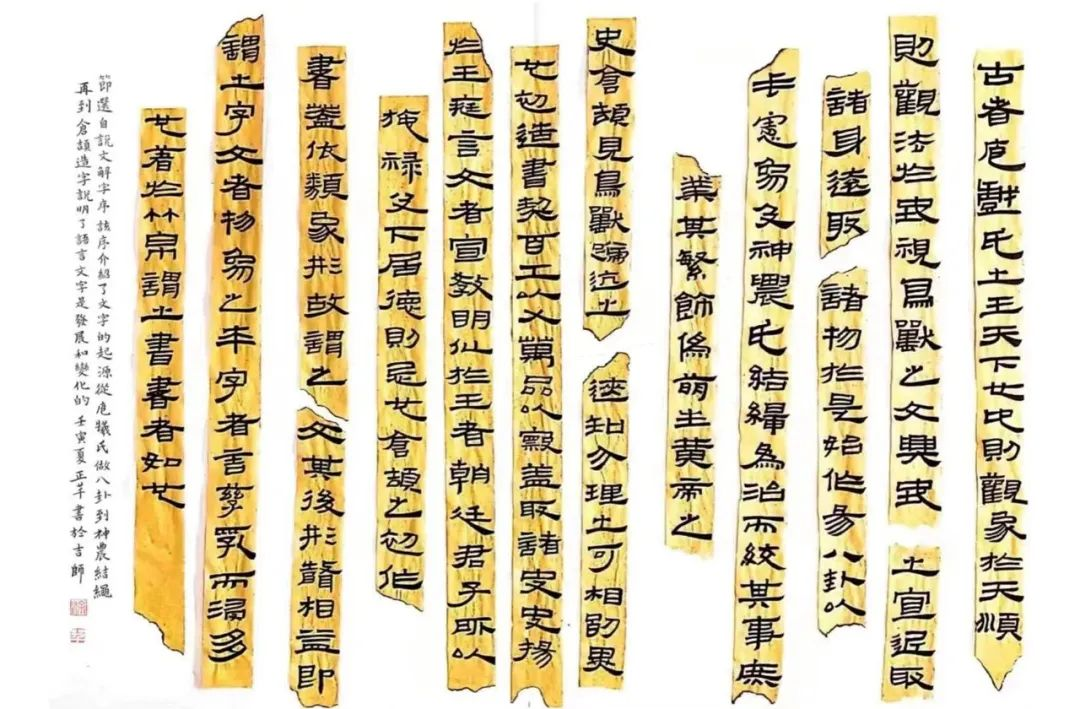 古者庖戲氏之王天下也仰則觀象於天頫
則觀法於地視鳥獸之文與地之宜近取
諸身遠取諸物於是始作易八卦以
垂憲象及神農氏結繩為治而統其事庶
業其繁飾偽萌生黃帝之
史倉頡見鳥獸蹏迒之迹知分理之可相別異
也初造書契百工以乂萬品以察蓋取諸夬夬揚
於王庭言文者宣教明化於王者朝廷君子所以
施祿及下居德則忌也倉頡之初作
書蓋依類象形故謂之文其後形聲相益即
謂之字文者物象之本字者言孳乳而浸多
也著於竹帛謂之書書者如也
節選自說文解字序該序介紹了文字的起源從庖犧氏做八卦到神農結繩
再到倉頡造字說明了語言文字是發展和變化的 壬寅夏正芊書於吉師